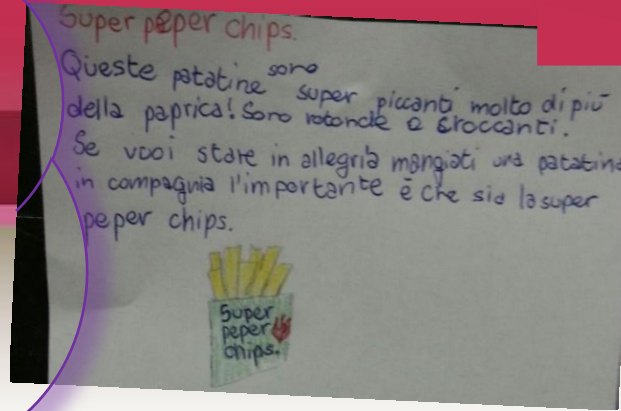 Super peper chips.
Queste patatine sono super piccanti molto di più
della paprica! Sono rotonde e croccanti.
Se vuoi stare in allegria mangiati una patatina
in compagnia l'importante è che sia la super
peper chips.
Super
peper
chips.